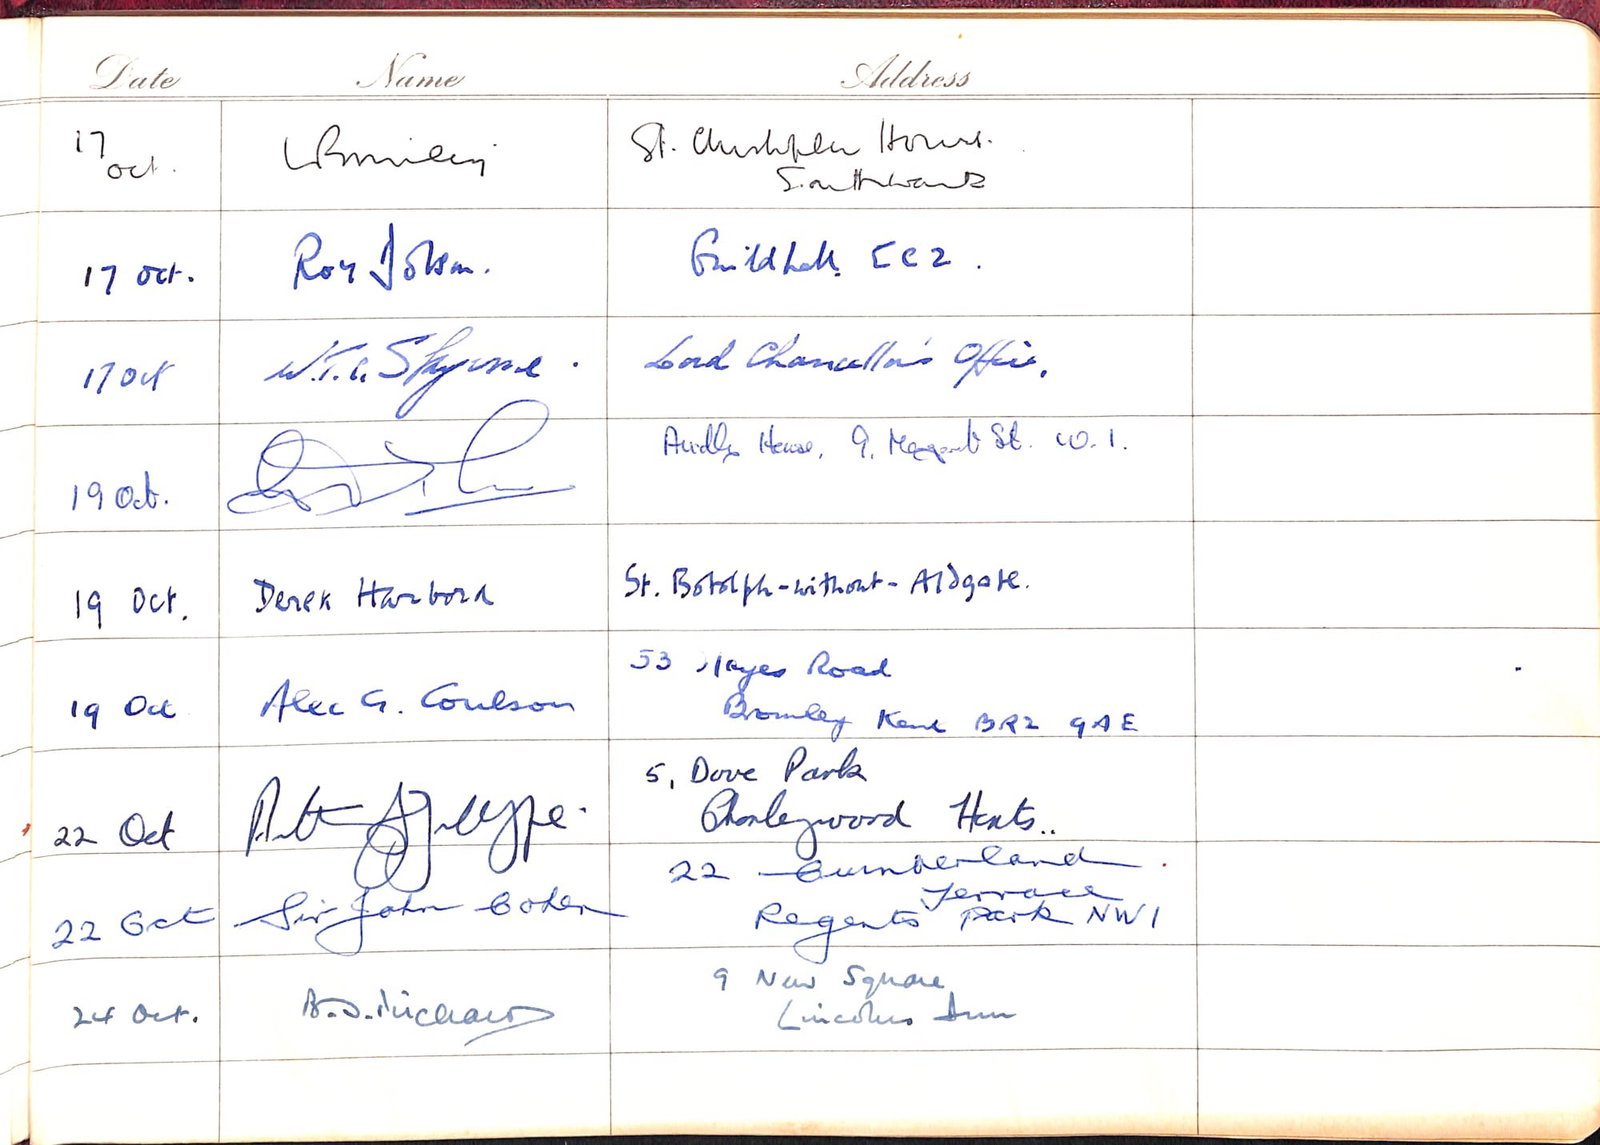 Date Name Address
17 oct. St. Christopher House.
Southwark
17 oct. Roy Guildhall, EC2.
17 Oct W.T.C. Skyrme. Lord Chancellor's Office.
19 Oct. Audley House, 9, Margaret St. W.1.
19 Oct. Derek Harbord St. Botolph-without-Aldgate.
19 Oct Alec G. Coulson 53 Hayes Road
Bromley Kent BR2 9AE
22 Oct 5, Dove Park
Chorleywood Herts..
22 Oct Sir John Cohen 22 Cumberland
Terrace
Regents Park NW1
24 Oct. 9 New Square
Lincolns Inn